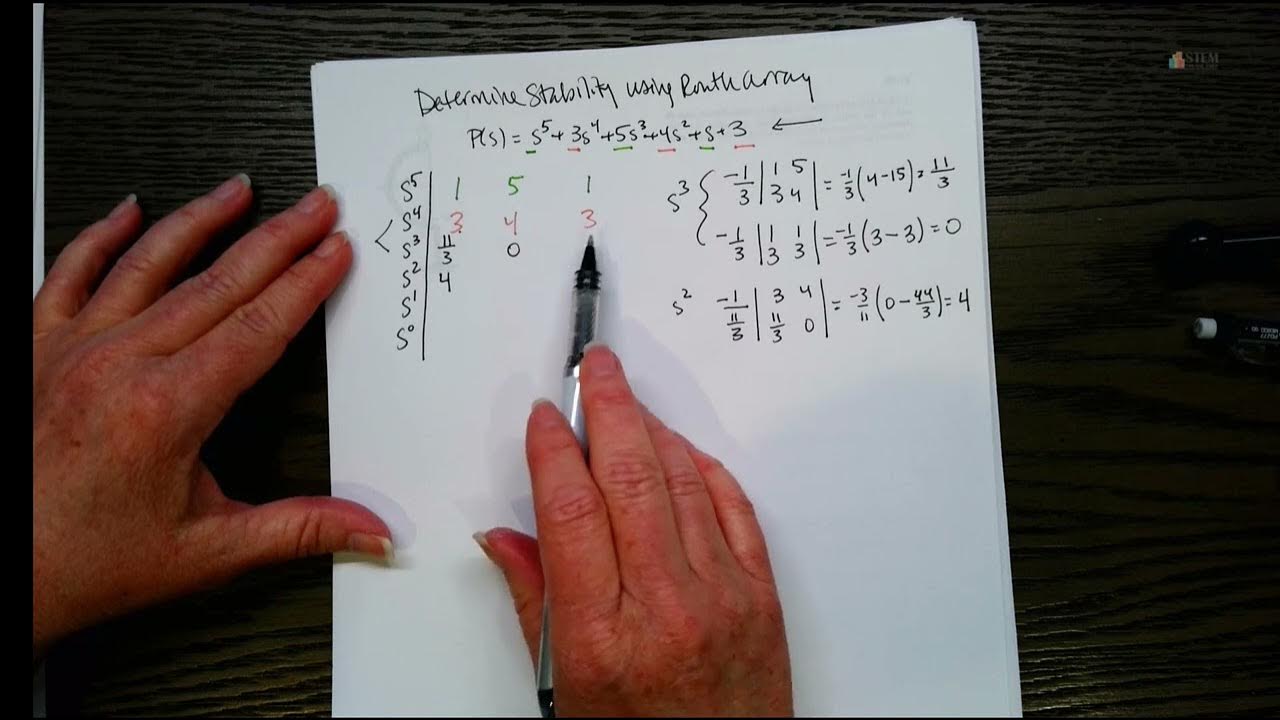 STEM
Determine Stability using Routh array
P(s) = s⁵+3s⁴+5s³+4s²+s+3 ←
s⁵ | 1 5 1
s⁴ | 3 4 3
s³ | 11/3 0
s² | 4
s¹ |
s⁰ |
s³ { -1/3 | 1 5 ; 3 4 | = -1/3 (4-15) = 11/3
-1/3 | 1 1 ; 3 3 | = -1/3 (3-3) = 0
s² -1/(11/3) | 3 4 ; 11/3 0 | = -3/11 (0 - 44/3) = 4